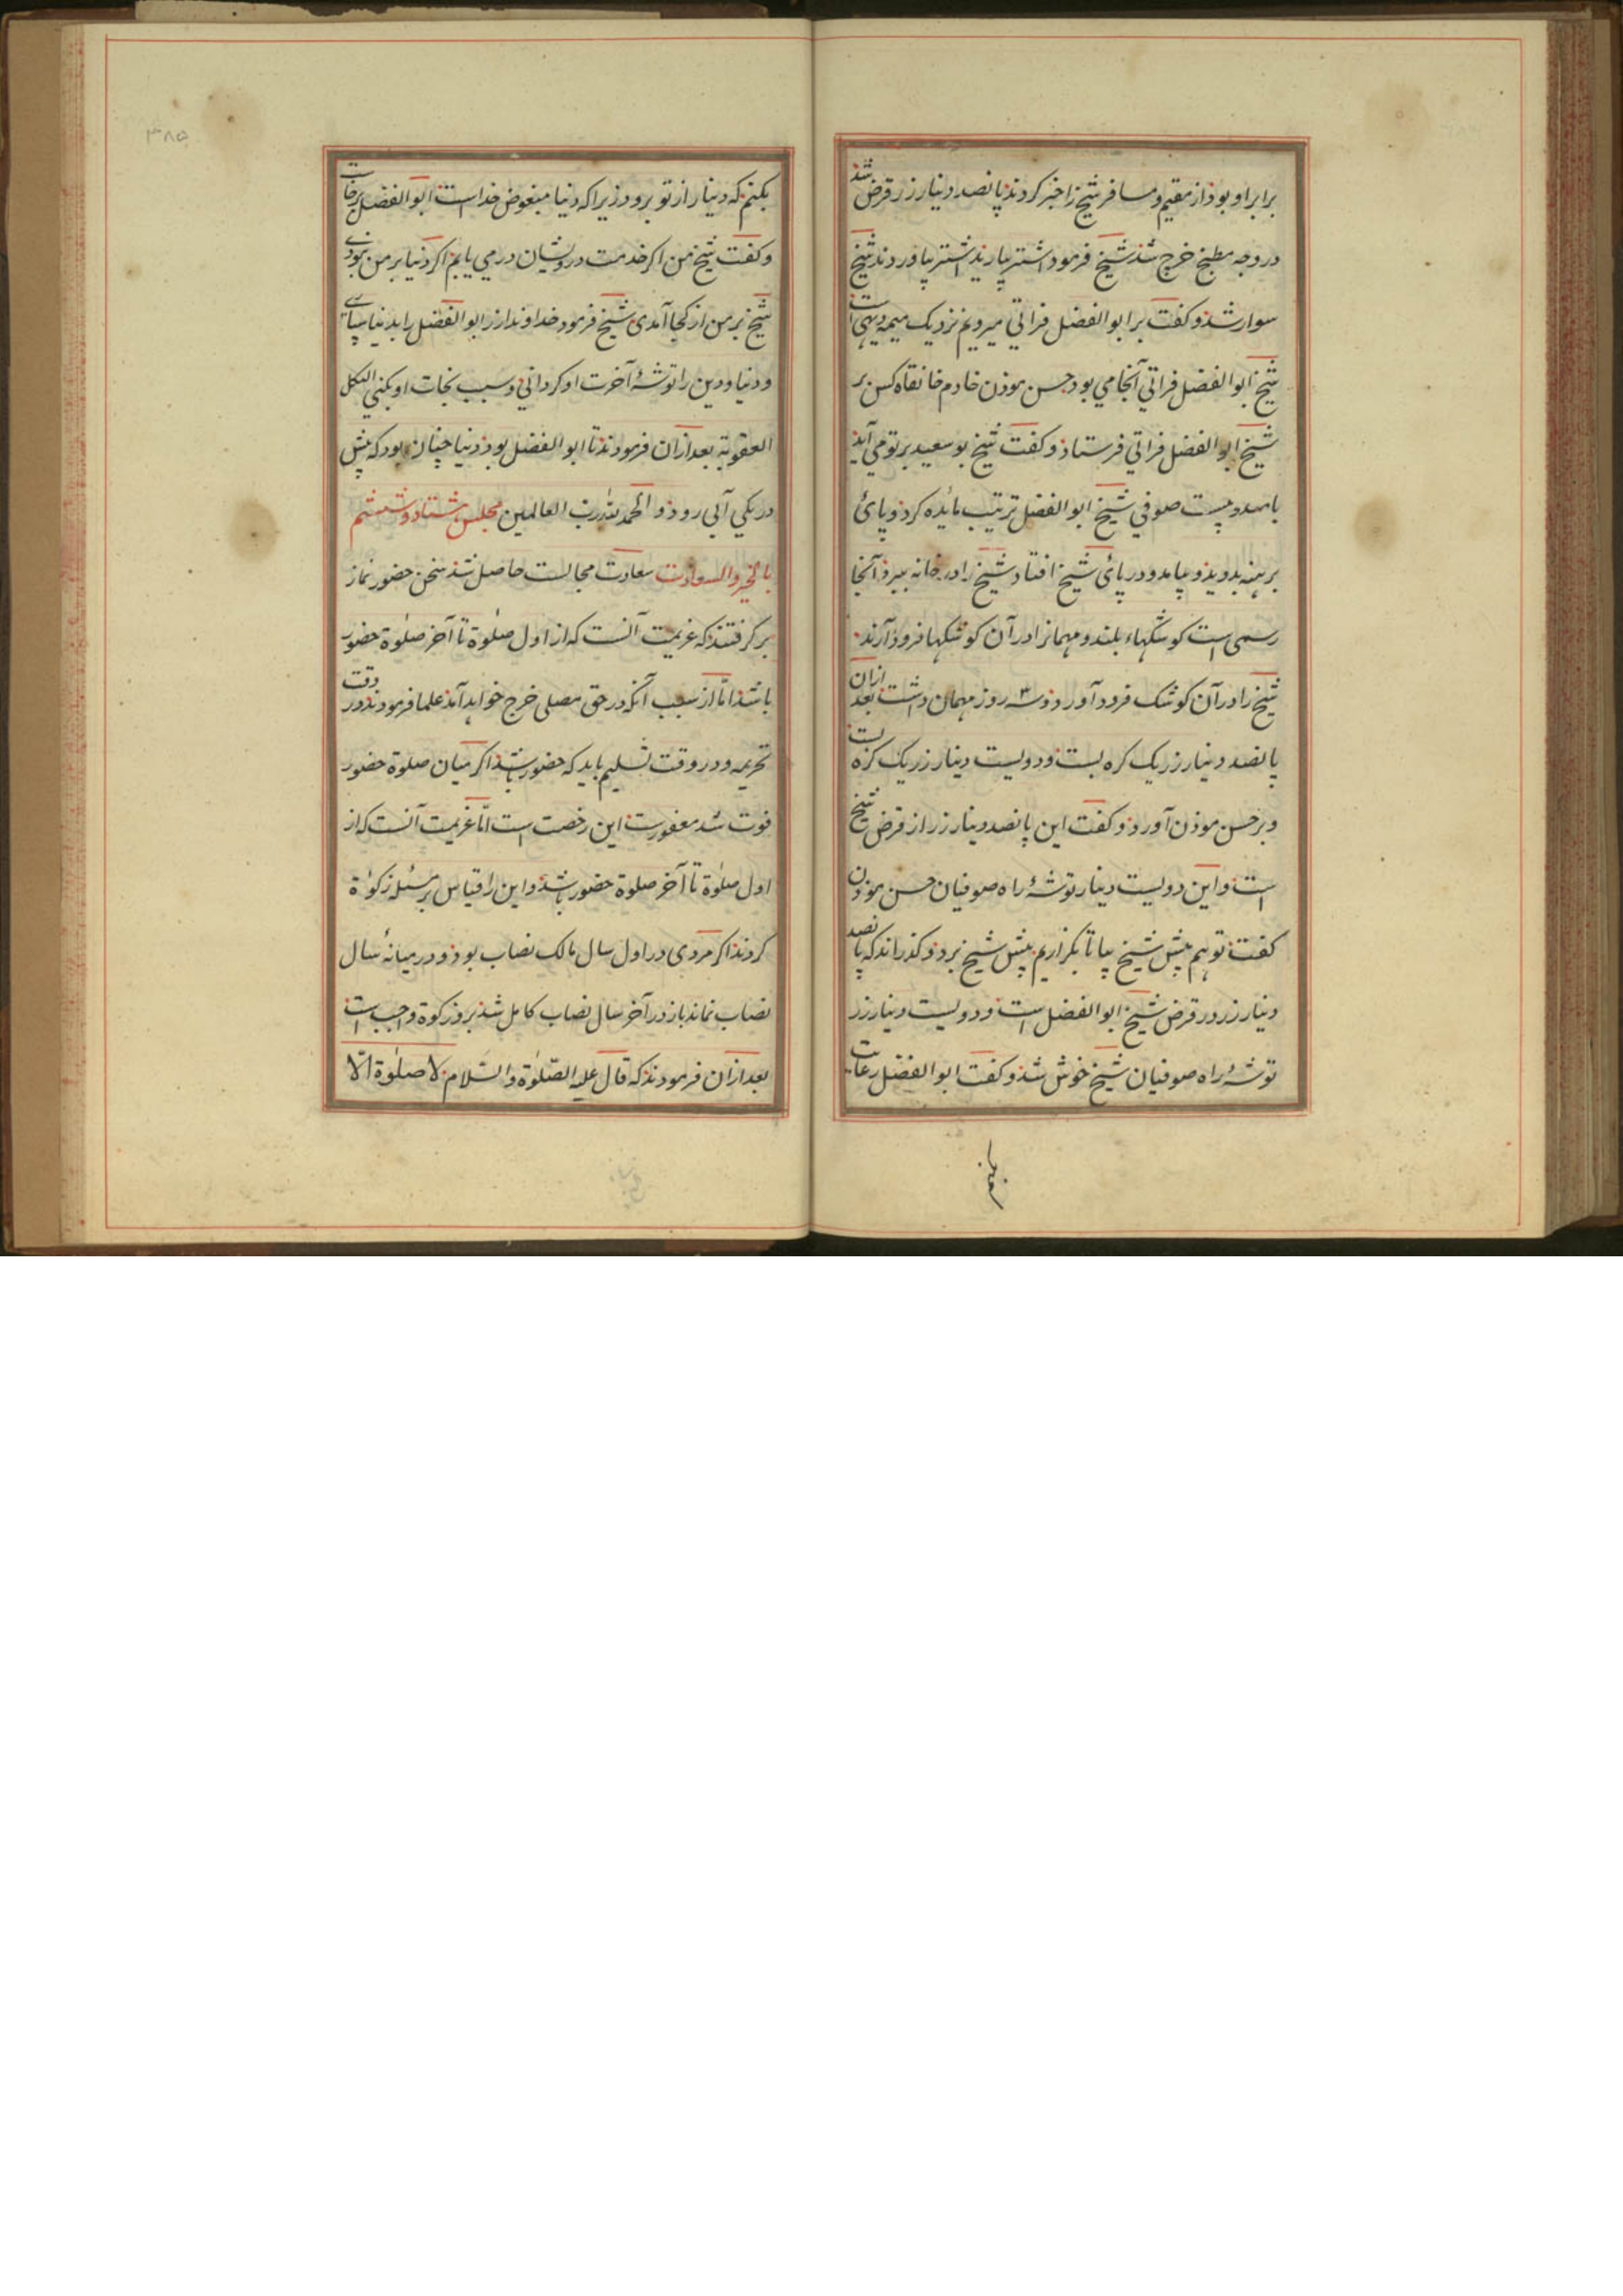 برابر او بوذ از مقیم و مسافر شیخ را خبر کردند پانصد دینار زر قرض شد
در وجه مطبخ خرج شد شیخ فرمود اشتر بیارند اشتر بیاوردند شیخ
سوار شد و کفت بر ابو الفضل فراتی میرویم نزدیک میهنه دیهی است
شیخ ابو الفضل فراتی آنجا می بود حسن موذن خادم خانقاه کس بر
شیخ ابو الفضل فراتی فرستاذ و کفت شیخ بو سعید بر تو می آید
با صد و بیست صوفی شیخ ابو الفضل ترتیب مائده کرد و پائ
برهنه بدوید و بیامد و در پائ شیخ افتاد شیخ را در خانه ببرد آنجا
رسمی است کوشکهاء بلند و مهمانرا در آن کوشکها فرود آرند
شیخ را در آن کوشک فرود آورد و سه روز مهمان داشت بعد ازان
پانصد دینار زر یک کره بست و دویست دینار زر یک کره بست
و بر حسن موذن آورد و کفت این پانصد دینار زر از قرض شیخ
است و این دویست دینار توشهٔ راه صوفیان حسن موذن
کفت تو هم پیش شیخ بیا تا بکزاریم پیش شیخ برد و کذراند که پانصد
دینار زر در قرض شیخ ابو الفضل است و دویست دینار زر
توشهٔ راه صوفیان شیخ خوش شد و کفت ابو الفضل دعات
بکنم
٣٨٥
بکنم که دینار از تو برود زیرا که دنیا مبغوض خدا است ابو الفضل برخاست
و کفت شیخ من اکر خدمت درویشان در می یابم اکر دنیا بر من نبودی
شیخ بر من از کجا آمدی شیخ فرمود خداوندا زر ابو الفضل را بدنیا
و دنیا و دین را توشهٔ آخرت او کردانی و سبب نجات او بکنی
العقوبة بعد ازان فرمودند تا ابو الفضل بود دنیا چنان بود که پیش
در یکی آبی رود و الحمد لله رب العالمین مجلس هشتاد و ششم
بالخیر و السعادت سعادت مجالست حاصل شد سخن حضور نماز
بر کرفتند که عزیمت آنست که از اول صلوٰة تا آخر صلوٰة حضور
باشد امّا از سبب آنکه در حق مصلی خرج خواهد آمد علما فرمودند در وقت
تحریمه و در وقت تسلیم باید که حضور باشد اکر میان صلوة حضور
فوت شد معفورست این رخصت است امّا عزیمت آنست که از
اول صلوٰة تا آخر صلوة حضور باشد و این را قیاس بر مسئله زکوٰة
کردند اکر مردی در اول سال مالک نصاب بود و در میانهٔ سال
نصاب نماند باز در آخر سال نصاب کامل شد برو زکوة واجب است
بعد ازان فرمودند که قال علیه الصّلوٰة و السّلام لا صلوٰة الّا